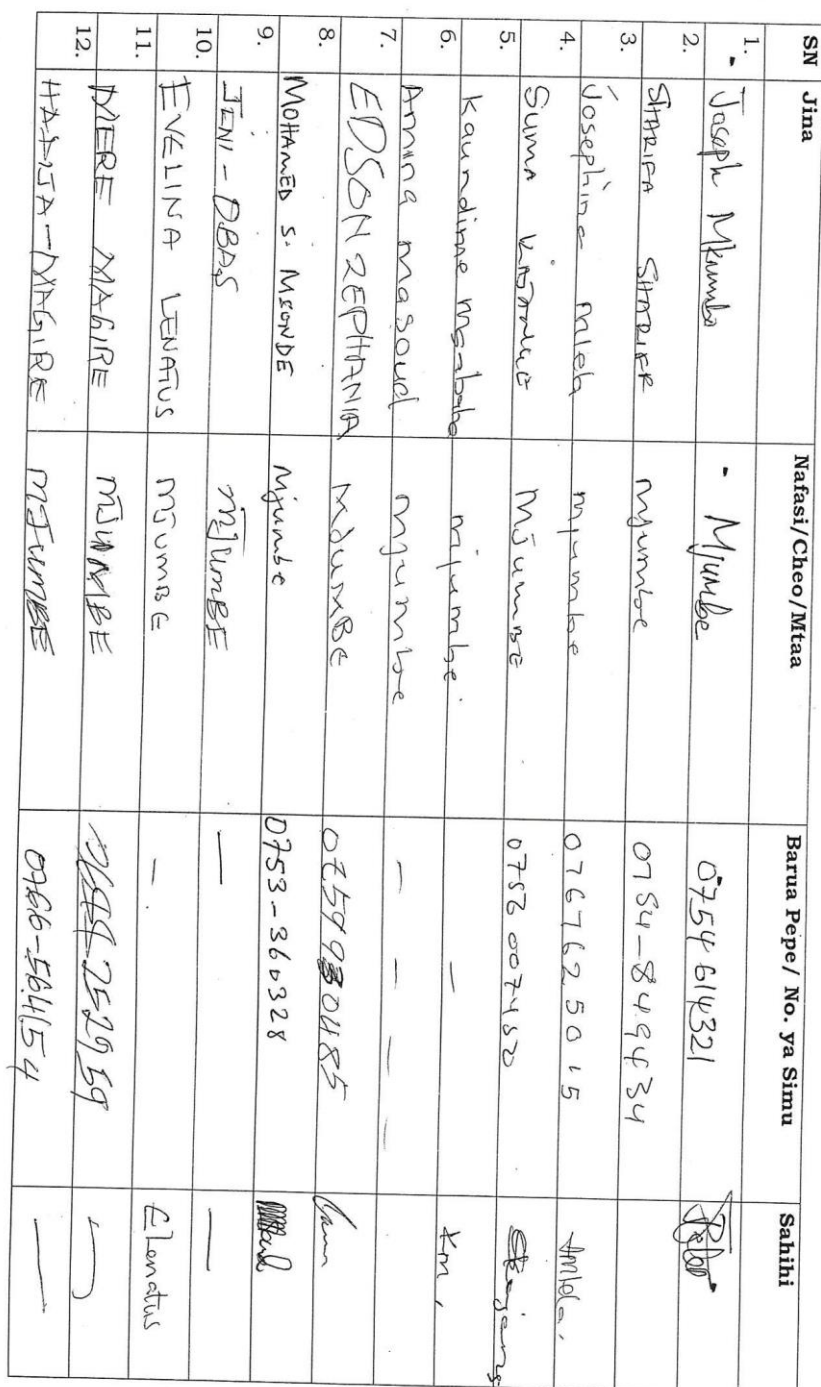 SN Jina Nafasi/Cheo/Mtaa Barua Pepe/ No. ya Simu Sahihi
1. Joseph Mkumbo Mjumbe 0754 614321
2. SHARIFA SHARIFF Mjumbe 0784-849434
3. Josephine Mlela mjumbe 0767625015
4. SUMA MJUMBE 0752007450
5. Kaundime msababa mjumbe — Km,
6. Amina Masoud mjumbe — — — —
7. EDSON ZEPHANIA MJUMBE
8. MOHAMED S. MSONDE Mjumbe 0753-360328
9. JENI - MJUMBE — —
10. EVELINA LENATUS MJUMBE — Elenatus
11. MERE MAGIRE MJUMBE
12. HADIJA-MAGIRE MJUMBE 0766-564154 —